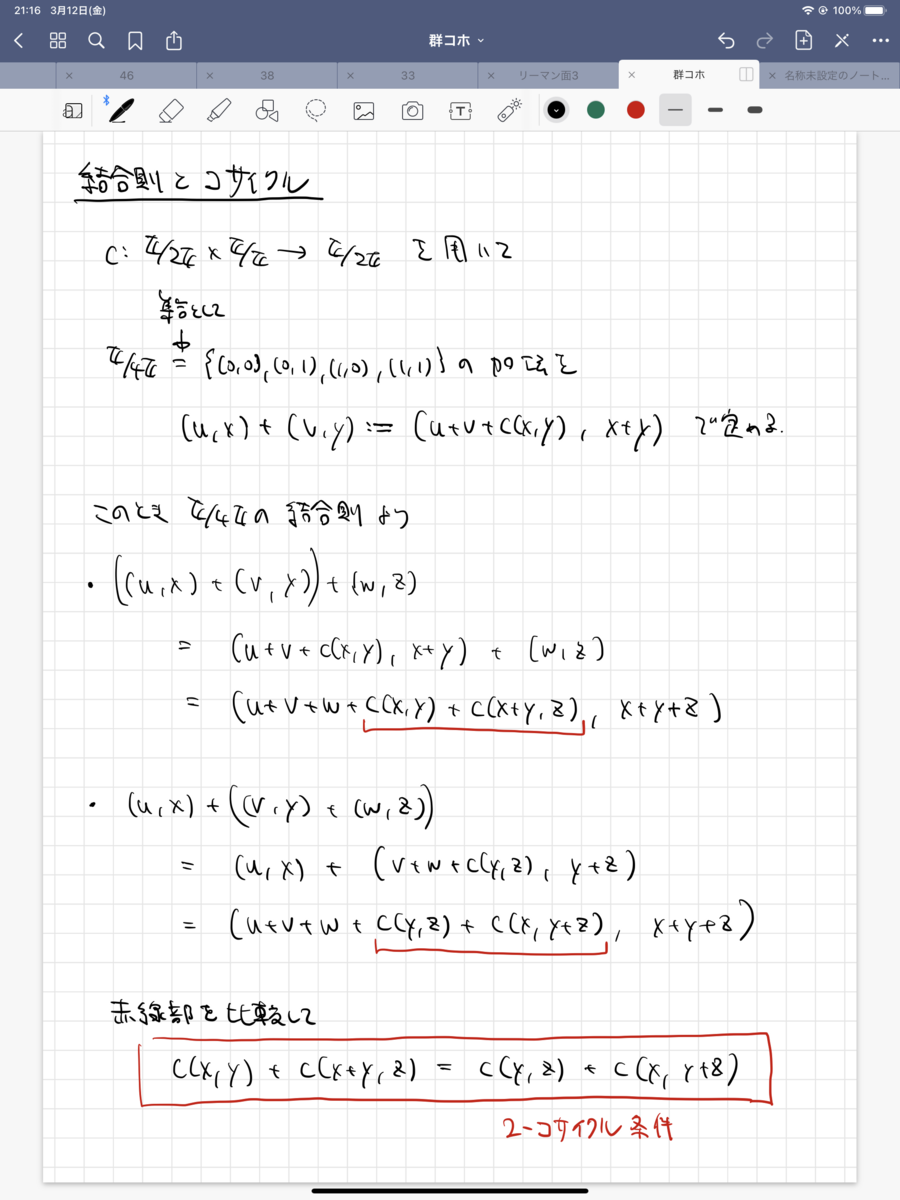 21:16 3月12日(金)
100%
群コホ
46
38
33
リーマン面3
群コホ
名称未設定のノート...
結合則とコサイクル
C: ℤ/2ℤ × ℤ/ℤ → ℤ/2ℤ を用いて
集合として
ℤ/4ℤ = {(0,0), (0,1), (1,0), (1,1)} の加法を
(u,x) + (v,y) := (u+v+c(x,y), x+y) で定める.
このとき ℤ/4ℤの結合則より
• ((u,x) + (v,y)) + (w,z)
= (u+v+c(x,y), x+y) + (w,z)
= (u+v+w+c(x,y) + c(x+y,z), x+y+z)
• (u,x) + ((v,y) + (w,z))
= (u,x) + (v+w+c(y,z), y+z)
= (u+v+w+c(y,z) + c(x,y+z), x+y+z)
赤線部を比較して
c(x,y) + c(x+y,z) = c(y,z) + c(x,y+z)
2-コサイクル条件